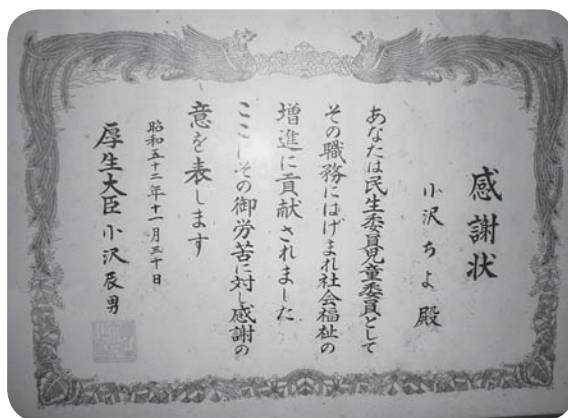 感謝状
小沢ちよ殿
あなたは民生委員児童委員として
その職務にはげまれ社会福祉の
増進に貢献されました
ここにその御労苦に対し感謝の
意を表します
昭和五十二年十一月三十日
厚生大臣小沢辰男